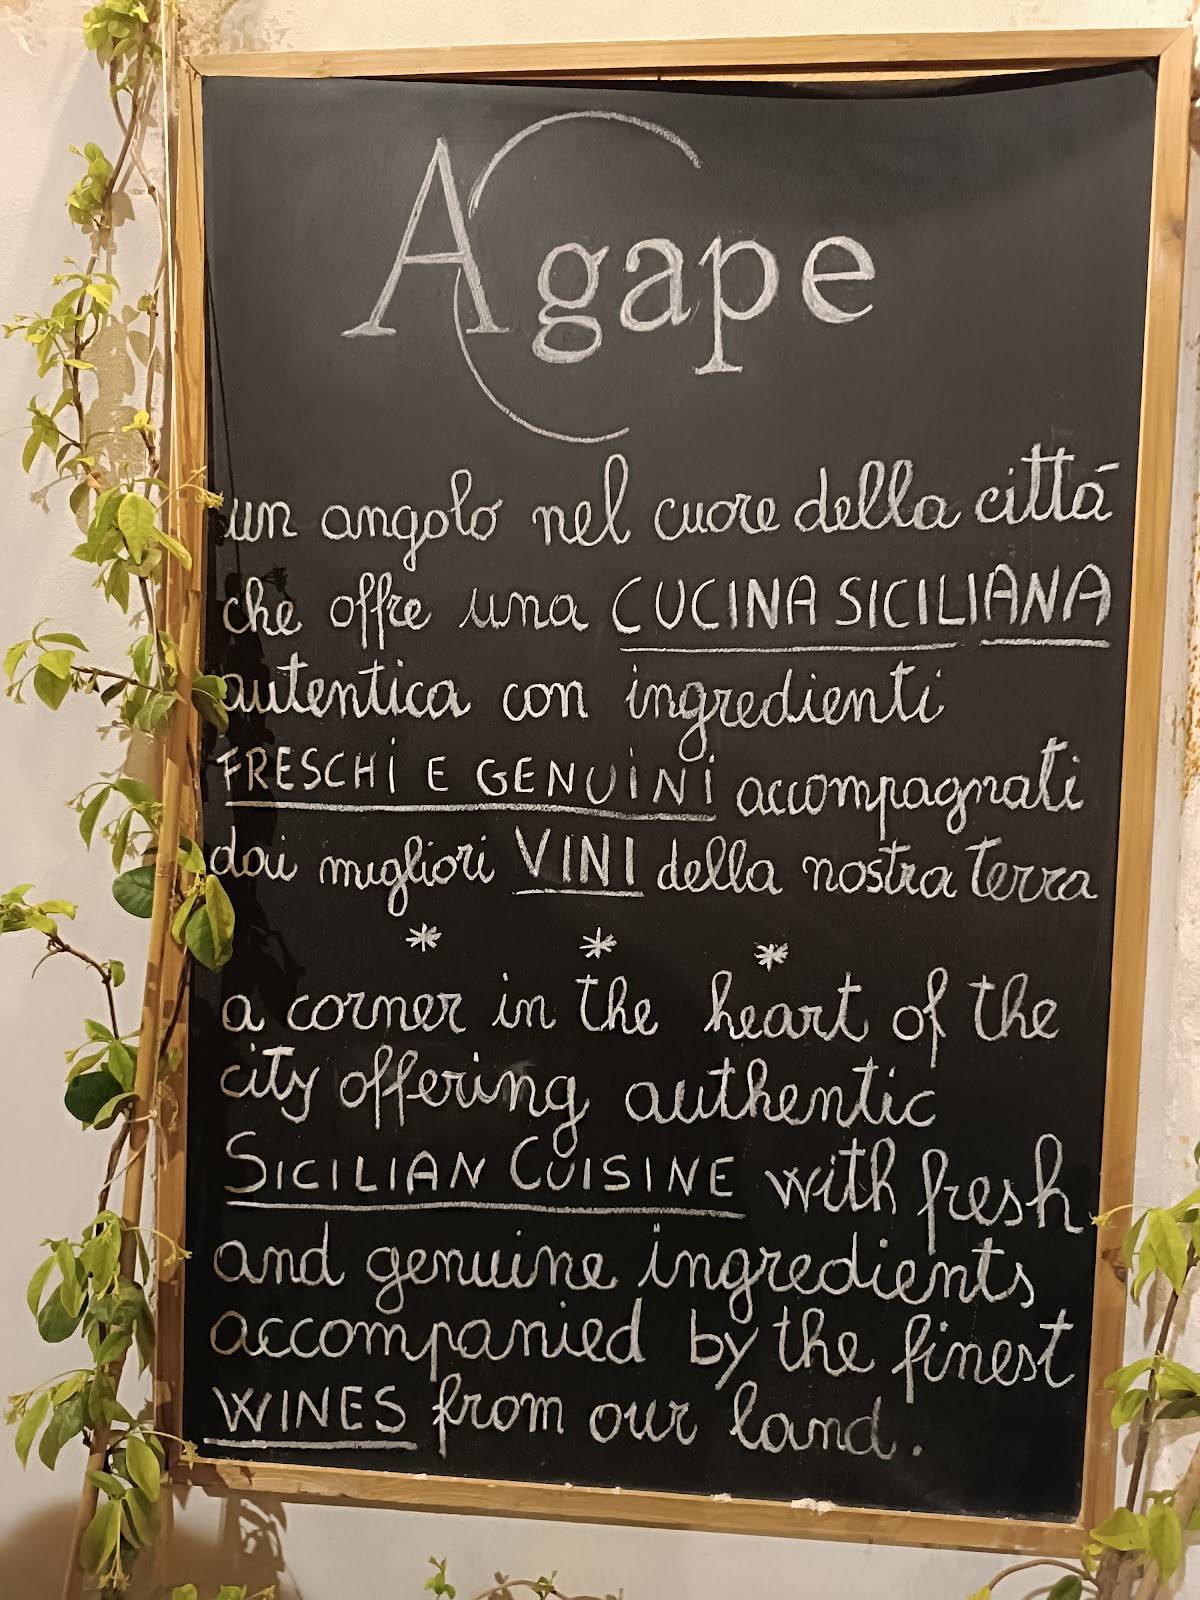 Agape
un angolo nel cuore della città
che offre una CUCINA SICILIANA
autentica con ingredienti
FRESCHI E GENUINI accompagnati
dai migliori VINI della nostra terra
* * *
a corner in the heart of the
city offering authentic
SICILIAN CUISINE with fresh
and genuine ingredients
accompanied by the finest
WINES from our land.